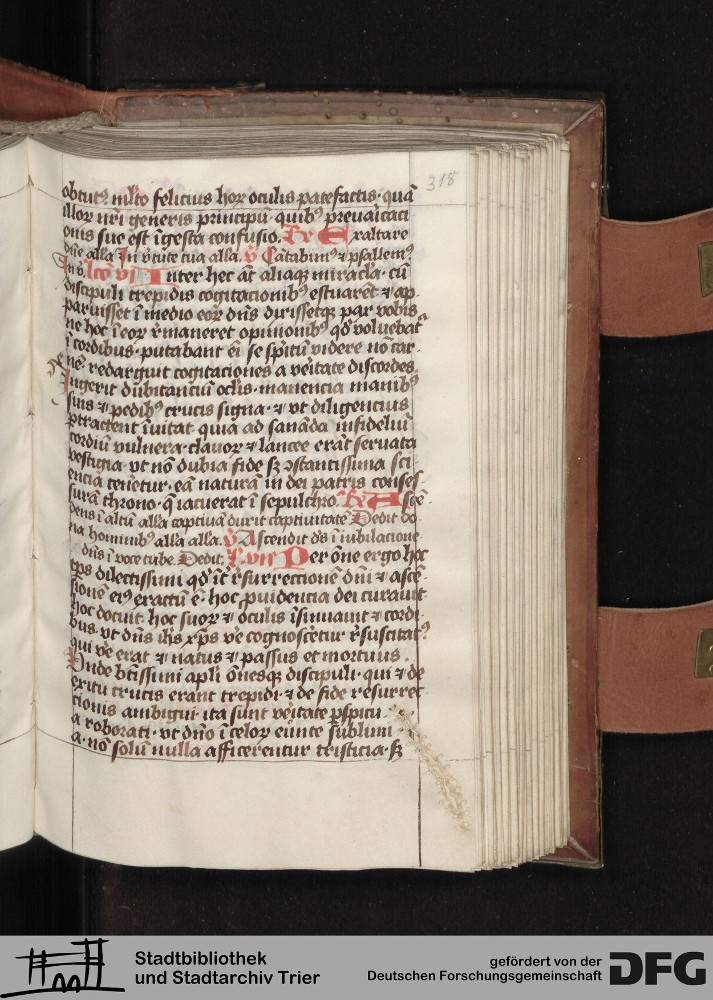 318
obtut⁹ ml̄to felicius hoꝝ oculis patefactis · quā
illoꝝ nr̄i generis principū · quib⁹ prevaricaci
onis sue est īgesta confusio. Re Exaltare
dn̄e alla In v̄tute tua alla. v̄ Cātabim⁹ ⁊ psallem⁹
In v̄. lc̄o vi Inter hec aūt aliaqꝫ miracl̄a · cū
discipuli trepidis cogitacionib⁹ estuarēt ⁊ ap-
paruisset ī medio eoꝝ dn̄s dixissetqꝫ pax vobis
ne hoc ī eoꝝ r̄maneret opinionib⁹ qd̄ voluebat̄
ī cordibus · putabant em̄ se sp̄itū videre nō car-
nē · redarguit cogitaciones a v̄itate discordes
Ingerit dubitanciū oc̄lis · manencia manib⁹
suis ⁊ pedib⁹ crucis signa · ⁊ vt diligencius
ꝑtractent īuitat · quia ad sanāda infideliū
cordiū vulnera · clauoꝝ ⁊ lancee erāt seruata
vestigia · vt nō dubia fide sꝫ ꝯstantissima sci-
encia tenetur · eā naturā in dei patris conses-
surā throno · q̄ iacuerat ī sepulchro. Re Ascē-
dens ī altū alla captiuā duxit captiuitatē Dedit do-
na hominib⁹ alla alla. v̄ Ascendit de⁹ ī iubilacione
dn̄s ī voce tube. Dedit. l. vii Per ōne ergo hoc
tp̄s dilectissimi qd̄ īt̄ r̄surrectionē dn̄i ⁊ ascē-
sionē ei⁹ exactū ē · hoc ꝓuidencia dei curauit
hoc docuit hoc suoꝝ ⁊ oculis īsinuauit ⁊ cordi-
bus. vt dn̄s ih̄s xp̄s v̄e cognoscetur r̄suscitat⁹
qui v̄e erat ⁊ natus ⁊ passus et mortuus.
Unde bt̄issimi apl̄i ōnesqꝫ discipuli · qui ⁊ de
exitu crucis erant trepidi · ⁊ de fide resurrec-
cionis ambigui · ita sunt v̄itate ꝑspicu-
a roborati · vt dn̄o ī celoꝝ eunte sublimi-
a · nō solū nulla afficerentur tristicia · sꝫ
Stadtbibliothek
und Stadtarchiv Trier
gefördert von der
Deutschen Forschungsgemeinschaft DFG